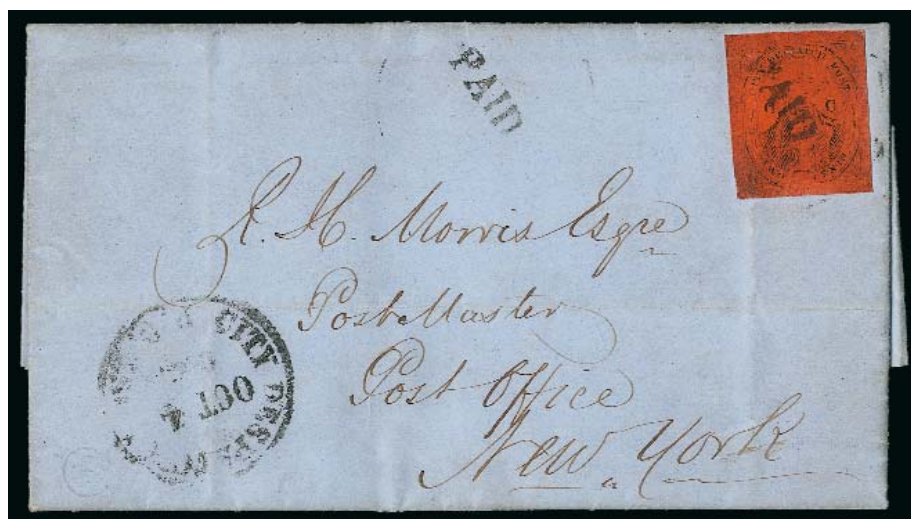 PAID
PAID
R. H. Morris Esqre
Post Master
Post Office
New York
CITY DESP
OCT 4